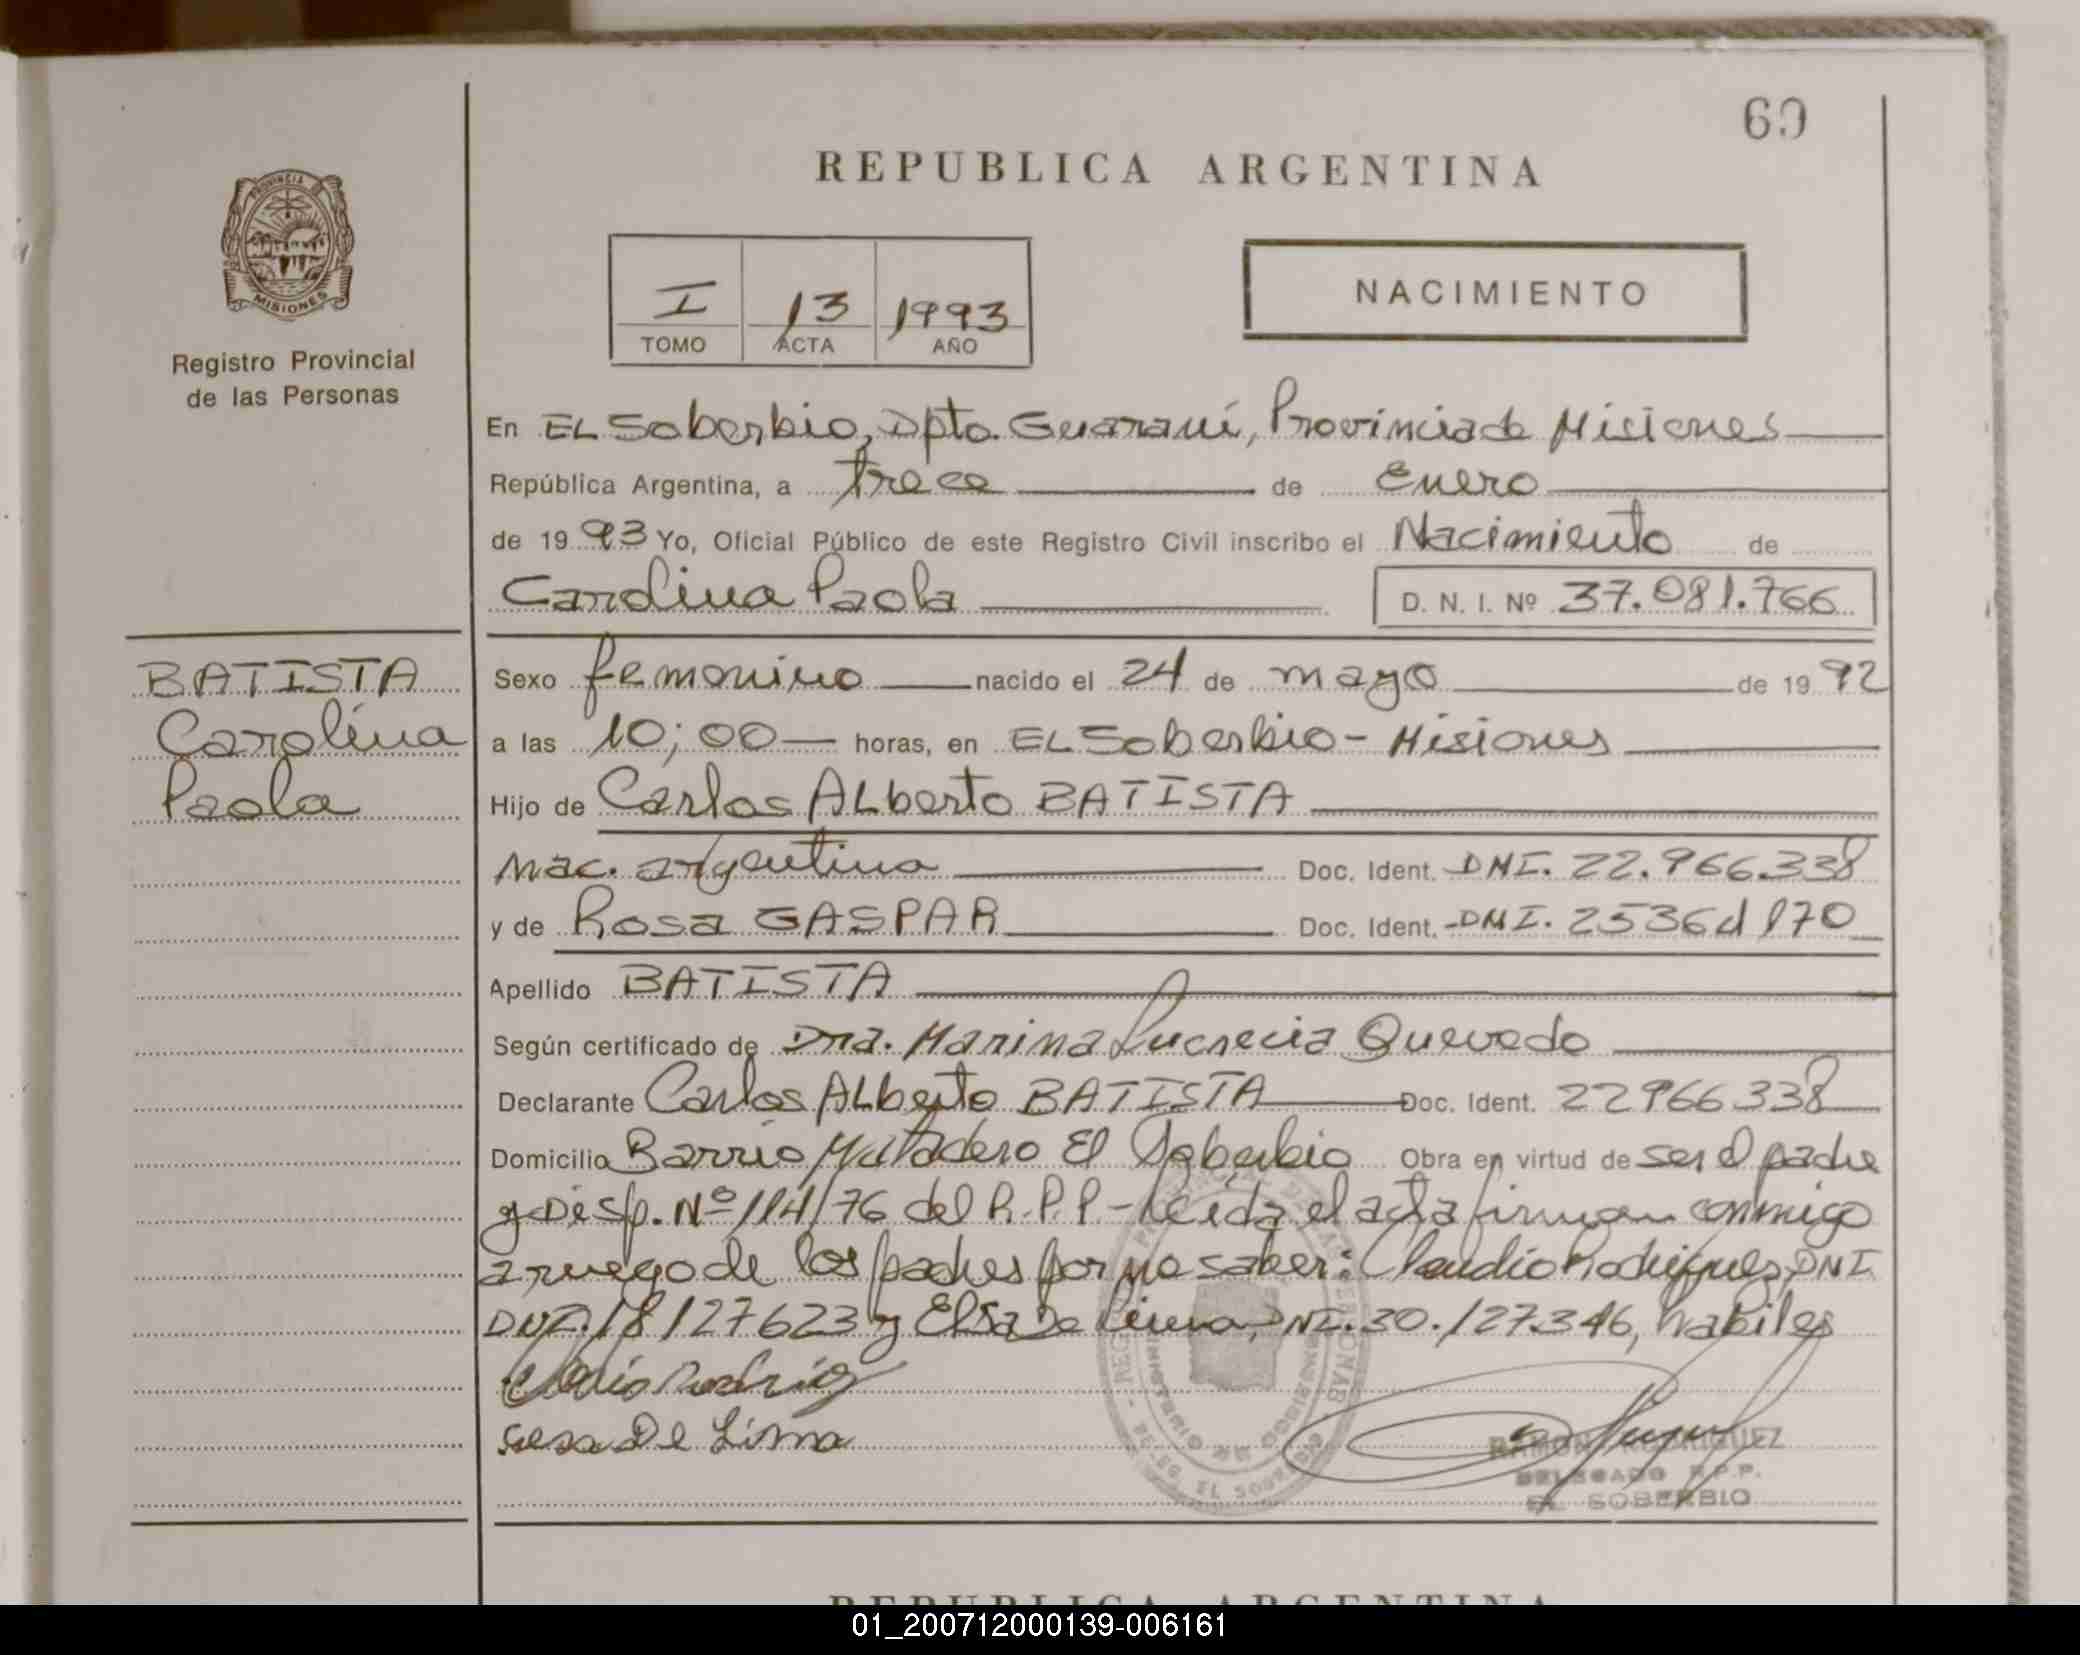 60
REPUBLICA ARGENTINA
PROVINCIA DE
MISIONES
Registro Provincial
de las Personas
I 13 1993
TOMO ACTA AÑO
NACIMIENTO
En EL Soberbio, Dpto. Guaraní, Provincia de Misiones
República Argentina, a trece de Enero
de 1993 Yo, Oficial Público de este Registro Civil inscribo el Nacimiento de
Carolina Paola D. N. I. Nº 37.081.766
BATISTA
Carolina
Paola
Sexo femenino nacido el 24 de mayo de 1992
a las 10;00 horas, en EL Soberbio - Misiones
Hijo de Carlos ALberto BATISTA
Nac. argentina Doc. Ident. DNI. 22.966.338
y de Rosa GASPAR Doc. Ident. DNI. 25364170
Apellido BATISTA
Según certificado de Dra. Marina Lucrecia Quevedo
Declarante Carlos ALberto BATISTA Doc. Ident. 22966338
Domicilio Barrio Matadero El Soberbio Obra en virtud de ser el padre
y Disp. Nº 114/76 del R.P.P - Leída el acta firman conmigo
a ruego de los padres por no saber: Claudio Rodriguez, DNI
DNI. 18127623 y Elsa De Lima, DNI. 30.127.346, habiles
De Lima
RAMON RODRIGUEZ
DELEGADO R.P.P.
EL SOBERBIO
REPUBLICA ARGENTINA
01_200712000139-006161